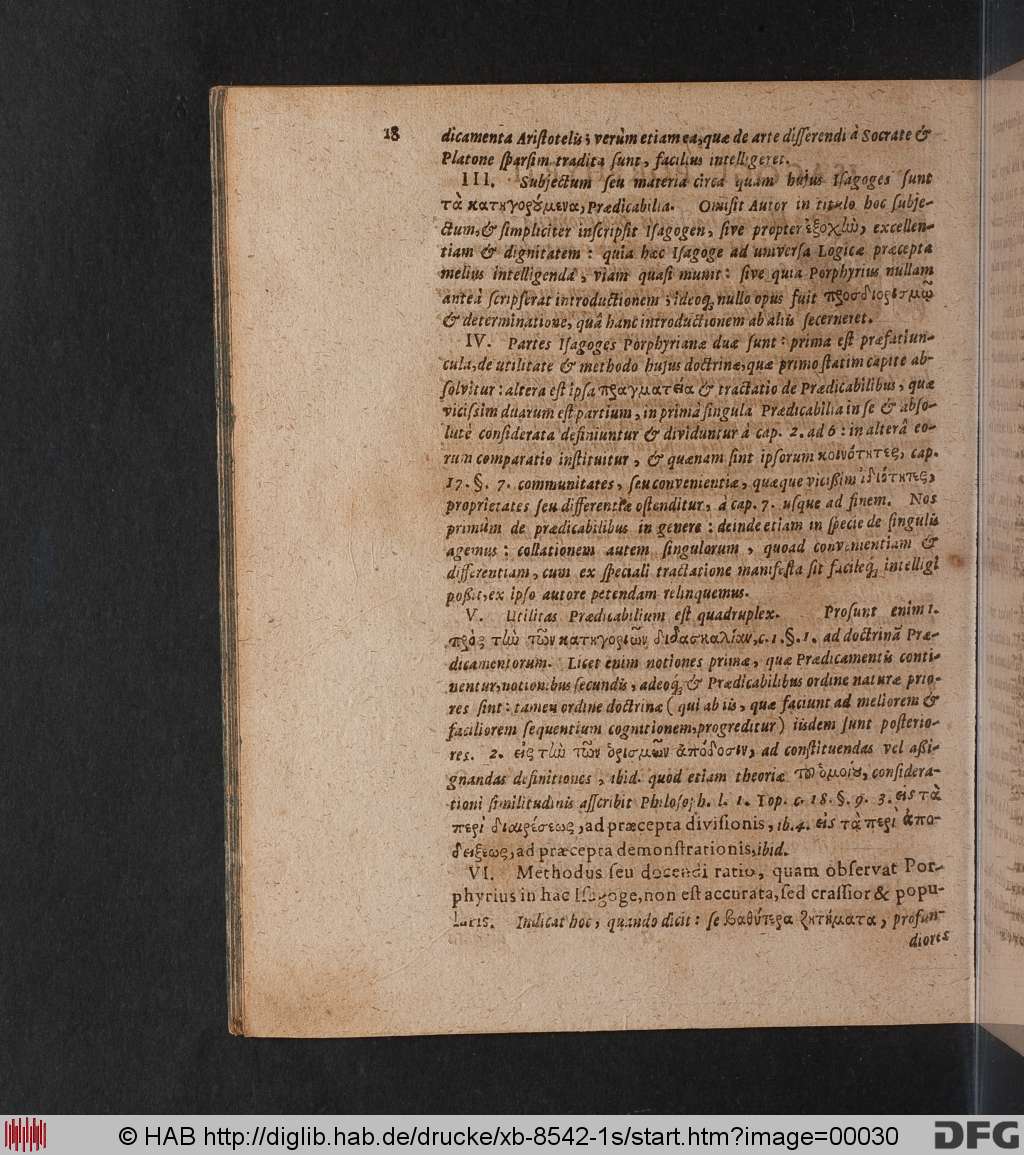 18
dicamenta Aristotelis; verùm etiam ea, quæ de arte disserendi à Socrate &
Platone sparsim tradita sunt, facilius intelligeret.
III. Subjectum seu materia circa quam hujus Isagoges sunt
τὰ κατηγορούμενα, Prædicabilia. Omisit Autor in titulo hoc subje-
ctum, & simpliciter inscripsit Isagogen, sive propter ἐξοχὼ, excellen-
tiam & dignitatem: quia hæc Isagoge ad universa Logicæ præcepta
melius intelligenda, viam quasi munit: sive quia Porphyrius nullam
anteà scripserat introductionem; ideoq; nullo opus fuit προσδιορισμῶ
& determinatione, quâ hanc introductionem ab aliis secerneret.
IV. Partes Isagoges Porphyrianæ duæ sunt: prima est præfatiun-
cula, de utilitate & methodo hujus doctrinæ, quæ primo statim capite ab-
solvitur: altera est ipsa πραγματεία & tractatio de Prædicabilibus, quæ
vicissim duarum est partium, in primâ singula Prædicabilia in se & abso-
lutè considerata definiuntur & dividuntur à cap. 2. ad 6: in alterâ eo-
rum comparatio instituitur, & quænam sint ipsorum κοινότητες, cap.
17. §. 7. communitates, seu convenientiæ, quæque vicißim ἰδιότητες,
proprietates seu differentiæ ostenditur, à cap. 7. usque ad finem. Nos
primùm de prædicabilibus in genere: deinde etiam in specie de singulis
agemus: collationem autem singulorum, quoad convenientiam &
differentiam, cum ex speciali tractatione manifesta sit facileq; intelligi
poßit, ex ipso autore petendam relinquemus.
V. Utilitas Prædicabilium est quadruplex. Prosunt enim 1.
πρὸς τὼ τῶν κατηγοριῶν διδασκαλίαν, c. 1. §. 1. ad doctrinā Præ-
dicamentorum. Licet enim notiones primæ, quæ Prædicamentis conti-
nentur, notionibus secundis, adeoq; & Prædicabilibus ordine naturæ prio-
res sint: tamen ordine doctrinæ (qui ab iis, quæ faciunt ad meliorem &
faciliorem sequentium cognitionem, progreditur) iisdem sunt posterio-
res. 2. εἰς τὼ τῶν ὁρισμῶν ἀπόδοσιν, ad constituendas vel aßi-
gnandas definitiones, ibid. quod etiam theoriæ τοῦ ὁμοίου, considera-
tioni similitudinis asscribit Philosoph. l. 1. Top. c. 18. §. 9. 3. εἰς τὰ
περὶ διαιρέσεως, ad præcepta divisionis, ib. 4. εἰς τὰ περὶ ἀπο-
δείξεως, ad præcepta demonstrationis, ibid.
VI. Methodus seu docendi ratio, quam observat Por-
phyrius in hac Isagoge, non est accurata, sed crassior & popu-
laris. Indicat hoc, quando dicit: se βαθύτερα ζητήματα, profun-
diores
© HAB http://diglib.hab.de/drucke/xb-8542-1s/start.htm?image=00030
DFG